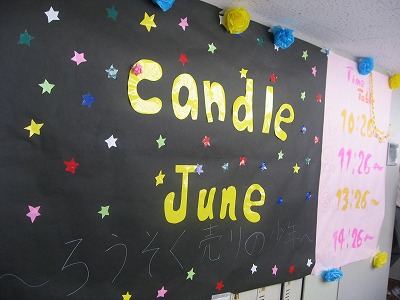 Candle
June
～ろうそく売りの少年～
Time
Table
10:26～
11:26～
13:26～
14:26～